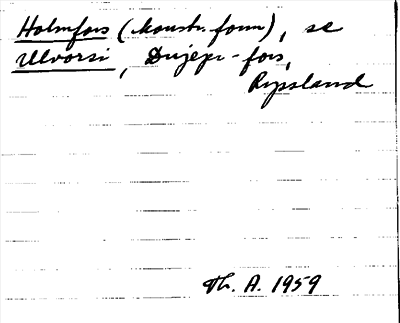 Holmfors (konstr. form), se
Ulvorsi, Dnjepr-fors,
Ryssland
Th. A. 1959